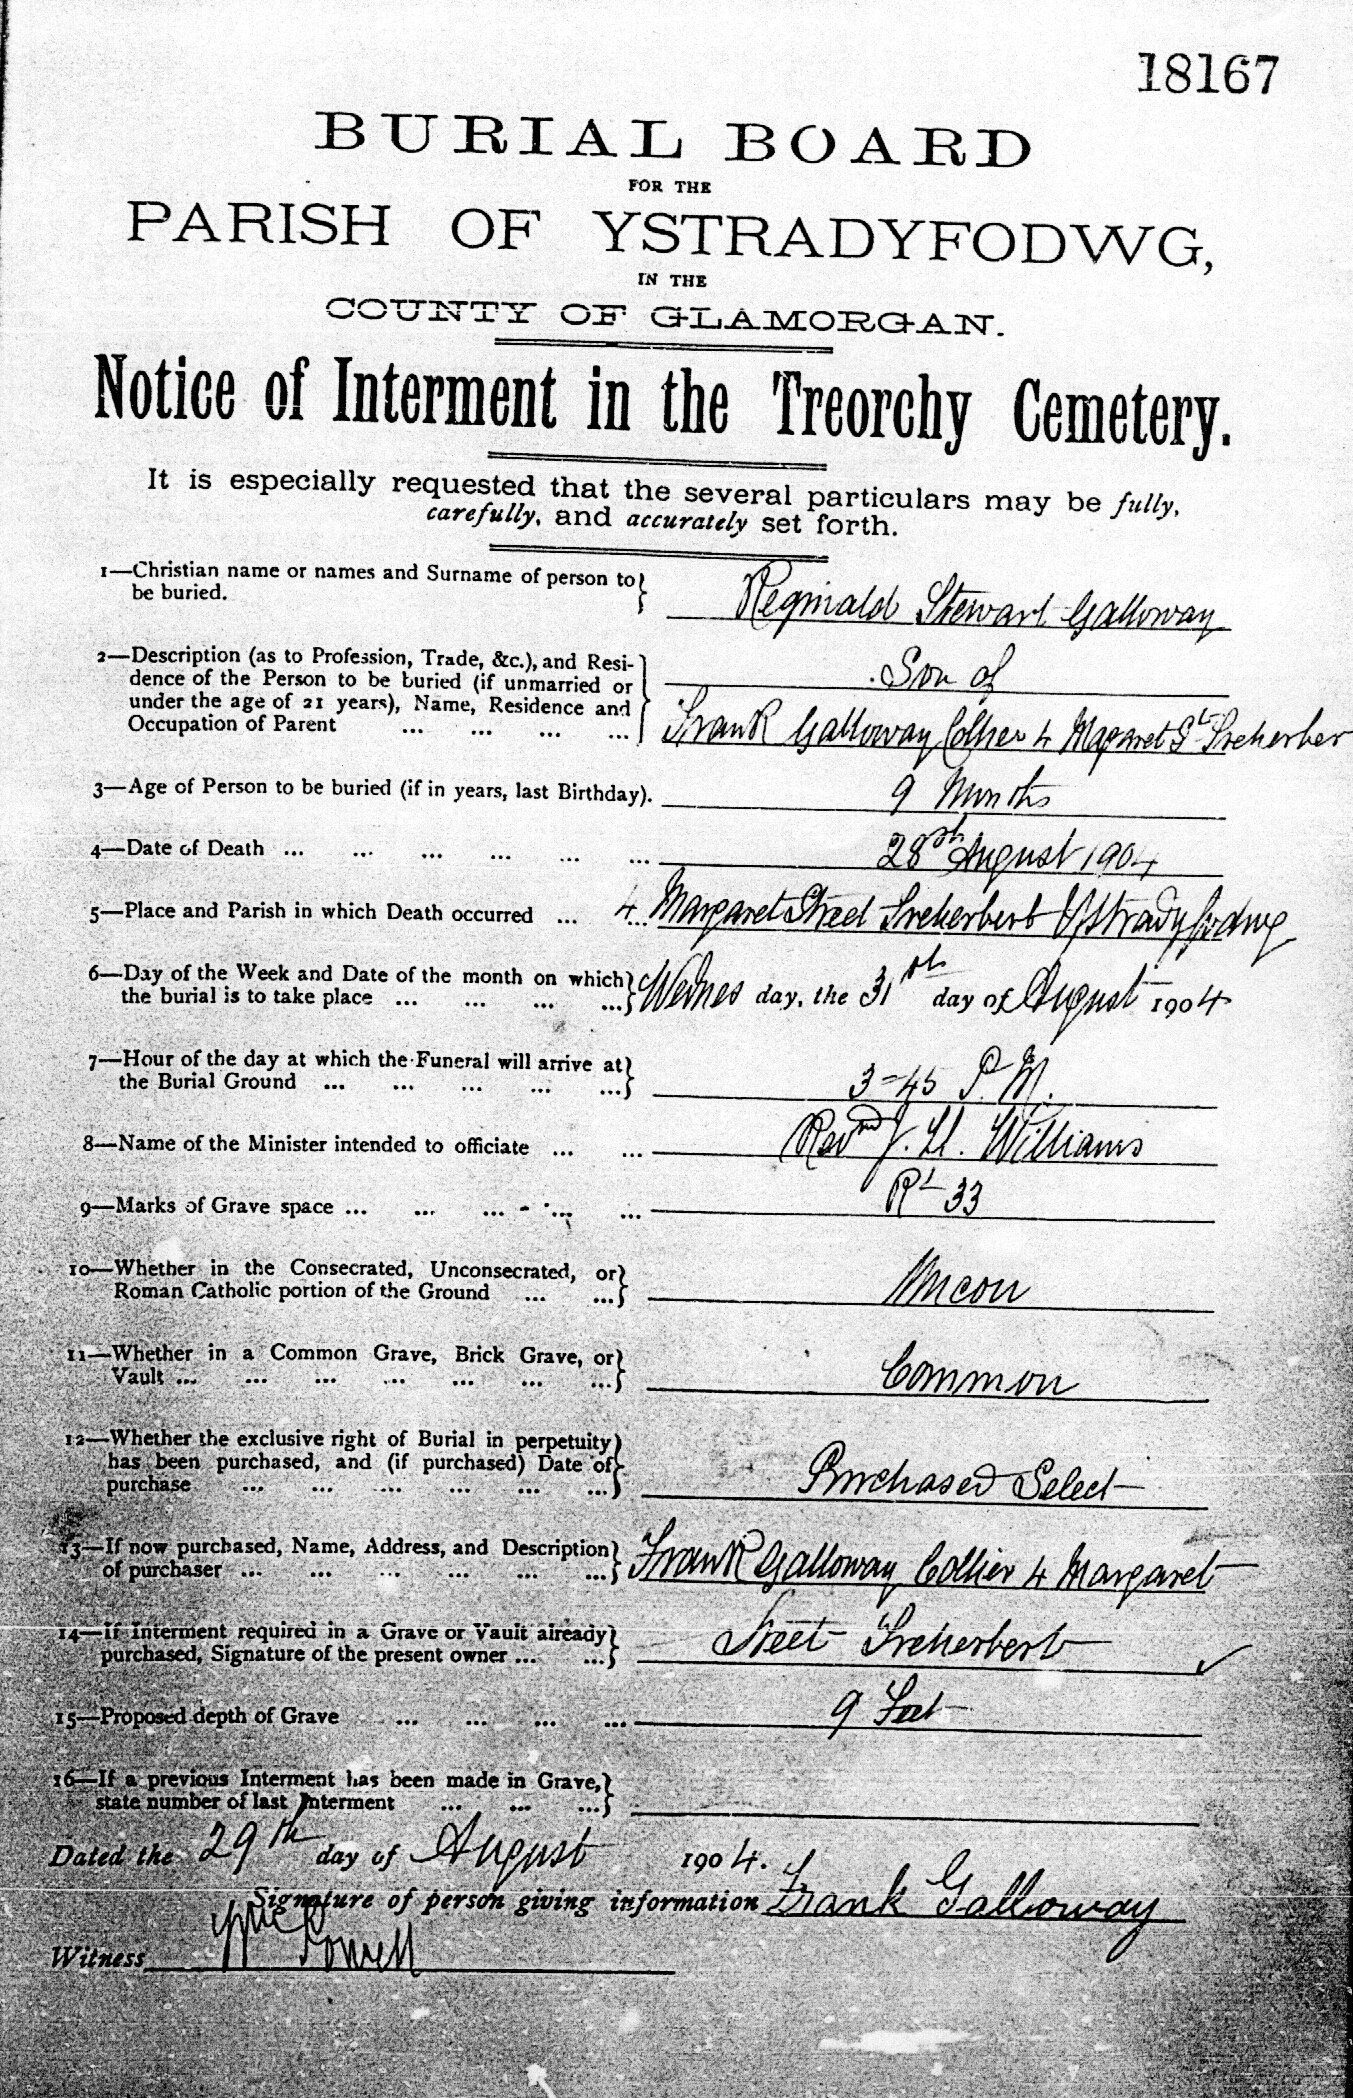 18167
BURIAL BOARD
FOR THE
PARISH OF YSTRADYFODWG,
IN THE
COUNTY OF GLAMORGAN.
Notice of Interment in the Treorchy Cemetery.
It is especially requested that the several particulars may be fully,
carefully, and accurately set forth.
1—Christian name or names and Surname of person to
be buried.
Reginald Stewart Galloway
2—Description (as to Profession, Trade, &c.), and Resi-
dence of the Person to be buried (if unmarried or
under the age of 21 years), Name, Residence and
Occupation of Parent ... ... ... ...
Son of
Frank Galloway Collier 4 Margaret St Treherber
3—Age of Person to be buried (if in years, last Birthday).
9 Months
4—Date of Death ... ... ... ... ... ...
28th August 1904
5—Place and Parish in which Death occurred ... ...
4 Margaret Street Treherbert Ystradyfodwg
6—Day of the Week and Date of the month on which
the burial is to take place ... ... ... ...
Wednes day, the 31st day of August 1904
7—Hour of the day at which the Funeral will arrive at
the Burial Ground ... ... ... ... ...
3-45 P.M.
8—Name of the Minister intended to officiate ... ...
Revnd J. Ll. Williams
9—Marks of Grave space ... ... ... ... ...
33
10—Whether in the Consecrated, Unconsecrated, or
Roman Catholic portion of the Ground ... ...
Uncon
11—Whether in a Common Grave, Brick Grave, or
Vault ... ... ... ... ... ... ...
Common
12—Whether the exclusive right of Burial in perpetuity
has been purchased, and (if purchased) Date of
purchase ... ... ... ... ... ...
Purchased Select
13—If now purchased, Name, Address, and Description
of purchaser ... ... ... ... ... ...
Frank Galloway Collier 4 Margaret
14—If Interment required in a Grave or Vault already
purchased, Signature of the present owner ... ...
Street Treherbert
15—Proposed depth of Grave ... ... ... ...
9 Feet
16—If a previous Interment has been made in Grave,
state number of last Interment ... ... ...
Dated the 29th day of August 1904.
Signature of person giving information Frank Galloway
Witness Wm Powell